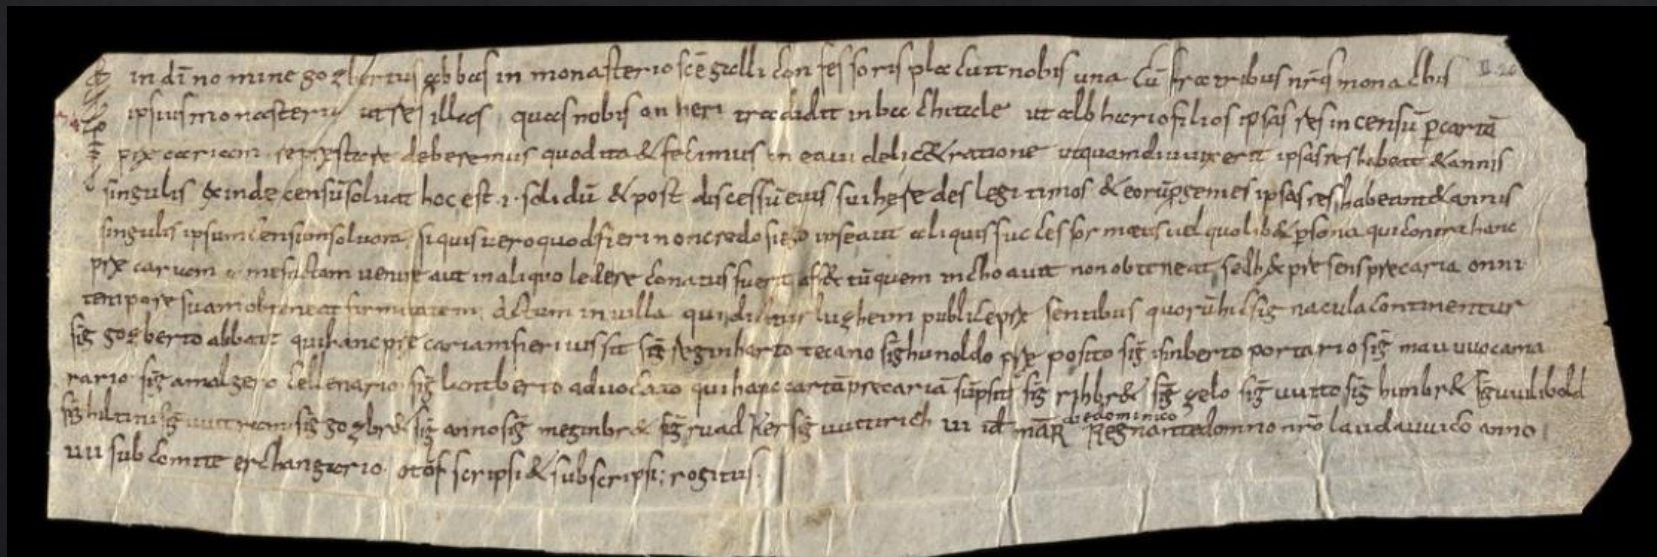 in dī nomine gozbertus abbas in monasterio scē galli confessoris placuit nobis una cū fratribus nrīs monachis
ipsius monasterii ut res illas quas nobis anheri tradidit in bachitale ut albhario filios ipsas res in censū p cartā
precariam represtare deberemus quod ita & fecimus in ea videlic& ratione ut quamdiu vixerit ipsas res habeat & annis
singulis exinde censū solvat hoc est ·i· solidū & post discessū eius sui heredes legitimos & eorū pgenies ipsas res habeant & annis
singulis ipsum censum solvant si quis vero quod fieri non credo si ego ipse aut aliquis successor meus vel quolib& psona qui contra hanc
precariam a me factam venire aut in aliquo ledere conatus fuerit & tū quem inchoavit non obteneat sed h& presens precaria omni
tempore suam obteneat firmitatem actum in villa qui dicitur lugheim publice presentibus quorū hic signacula continentur
sig̅ gozberto abbati qui hanc precariam fieri iussit sig̅ reginharto tecano sig̅ hunoldo preposito sig̅ isinberto portario sig̅ mauuuo cama
rario sig̅ amalgero cellenario sig̅ lantberto advocato qui hanc cartā precariā sūpsit sig̅ rihbr& sig̅ zelo sig̅ uuitto sig̅ hunbr& sig̅ uuilibold
sig̅ hiltini sig̅ uuitram sig̅ gozbr& sig̅ anno sig̅ meginbr& sig̅ ruadker sig̅ uuiturich iii id mar̅ die dominico Regnante domno nrō laudauuico anno
iiii sub comite erchangario. otolf scripsi & subscripsi; rogitus.